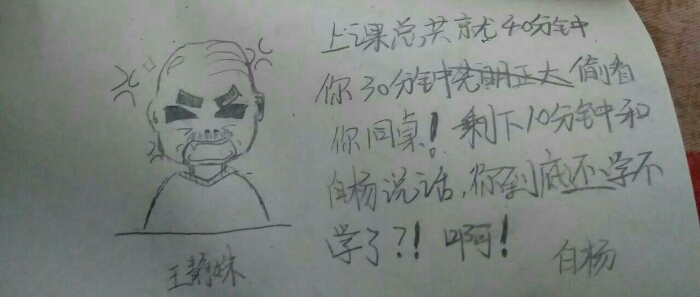 上课总共就40分钟
你30分钟光明正大偷看
你同桌！剩下10分钟和
白杨说话，你到底还学不
学了？！啊！
王静妹
白杨